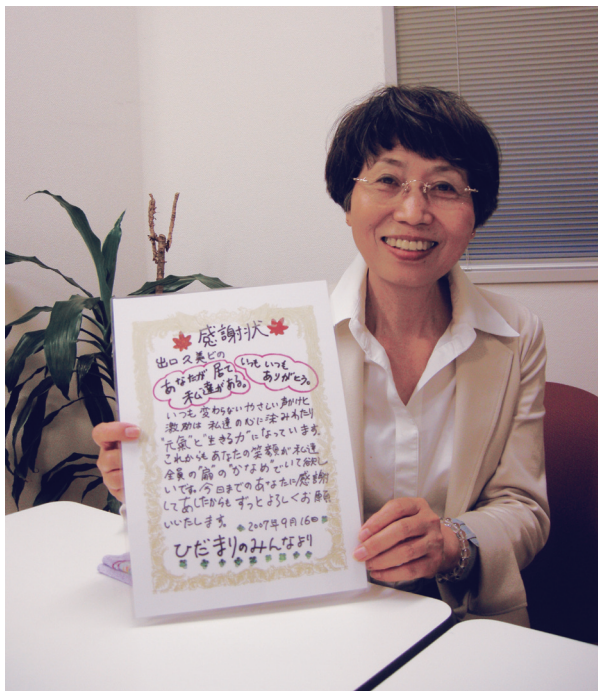 感謝状
出口久美どの
あなたが居て
私達がある。
いつも いつも
ありがとう。
いつも変わらないやさしい声かけと
激励は私達の心に染みわたり
"元氣"と"生きる力"になっています。
これからもあなたの笑顔が私達
全員の"扇"の"かなめ"でいて欲し
いです。今日までのあなたに感謝
してあしたからもずっとよろしくお願
いいたします。
2007年9月16日
ひだまりのみんなより